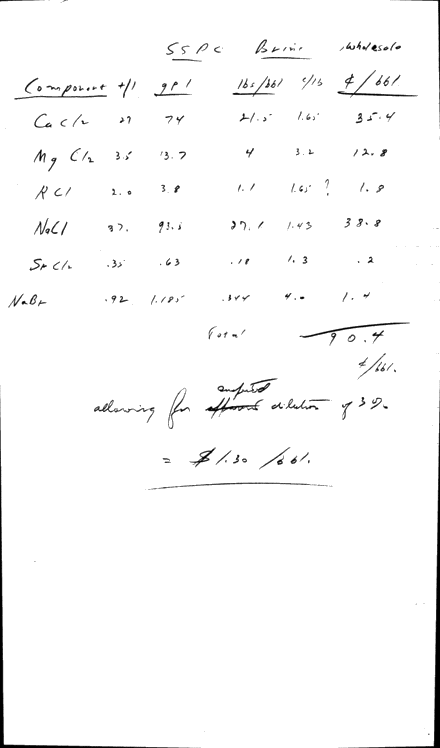 SSPC Brine wholesale
Component +/1 gpl lbs/bbl ¢/lb ¢/bbl
CaCl2 27 74 21.5 1.65 35.4
MgCl2 3.5 13.7 4 3.2 12.8
KCl 2.0 3.8 1.1 1.65 ? 1.8
NaCl 37. 93.5 27.1 1.43 38.8
SrCl2 .35 .63 .18 1.3 .2
NaBr .92 1.185 .344 4.0 1.4
Total 90.4
¢/bbl.
allowing for dilution of
= $1.30 /bbl.